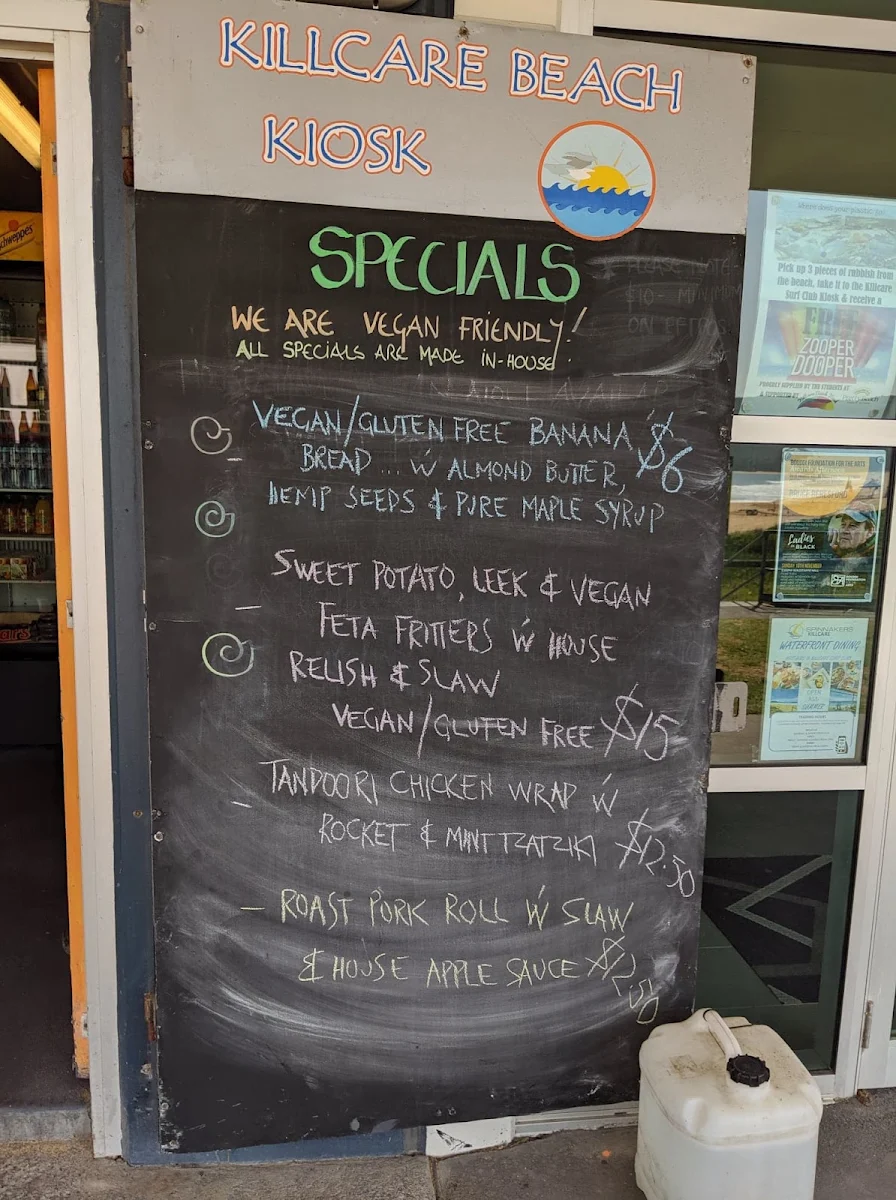 KILLCARE BEACH
KIOSK
SPECIALS
PLEASE NOTE-
$10- MINIMUM
ON EFTPOS
WE ARE VEGAN FRIENDLY!
ALL SPECIALS ARE MADE IN-HOUSE
VEGAN/GLUTEN FREE BANANA $6
BREAD... W ALMOND BUTTER,
HEMP SEEDS & PURE MAPLE SYRUP
SWEET POTATO, LEEK & VEGAN
FETA FRITTERS W HOUSE
RELISH & SLAW
VEGAN/GLUTEN FREE $15
- TANDOORI CHICKEN WRAP W
ROCKET & MINT TZATZIKI $12.50
- ROAST PORK ROLL W SLAW
& HOUSE APPLE SAUCE $12.50
Schweppes
Pick up 3 pieces of rubbish from
the beach, take it to the Killcare
Surf Club Kiosk & receive a
FREE
ZOOPER
DOOPER
Ladies
in BLACK
SPINNAKERS
KILLCARE
WATERFRONT DINING